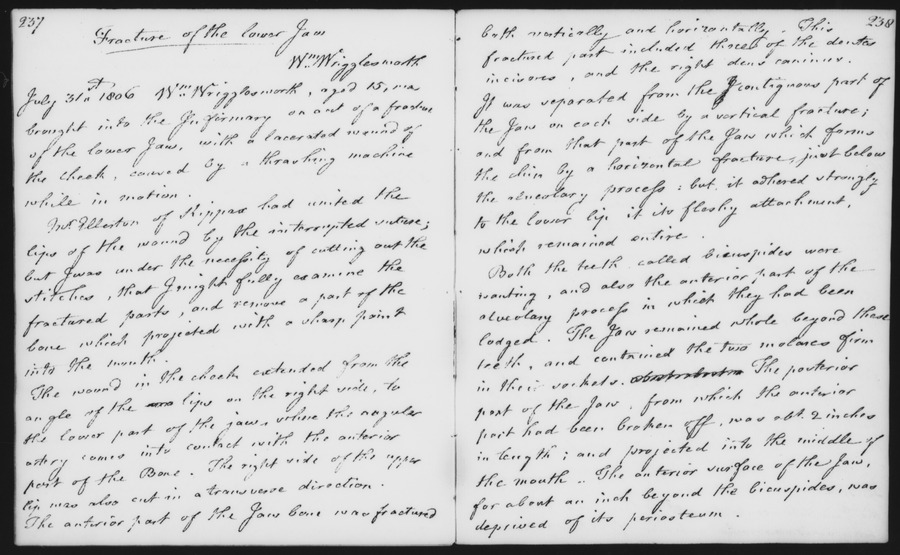 237
Fracture of the lower Jaw
Wm Wrigglesworth
July 31st 1806 Wm Wrigglesworth, aged 15, was
brought into the Infirmary on acct of a fracture
of the lower Jaw, with a lacerated wound of
the cheek, caused by a thrashing machine
while in motion.
Mr Ellerton of Kippax had united the
lips of the wound by the interrupted suture;
but I was under the necessity of cutting out the
stitches, that I might fully examine the
fractured parts, and remove a part of the
bone which projected with a sharp point
into the mouth.
The wound in the cheek extended from the
angle of the lips on the right side, to
the lower part of the jaw, where the angular
artery comes into contact with the anterior
part of the Bone. The right side of the upper
lip was also cut in a transverse direction.
The anterior part of the Jaw bone was fractured
238
both vertically and horizontally. This
fractured part included three of the dentes
incisores, and the right dens caninus.
It was separated from the contiguous part of
the Jaw on each side by a vertical fracture;
and from that part of the Jaw which forms
the chin by a horizontal fracture, just below
the alveolary process: but it adhered strongly
to the lower lip it its fleshy attachment,
which remained entire.
Both the teeth called bicuspides were
wanting, and also the anterior part of the
alveolary process in which they had been
lodged. The Jaw remained whole beyond these
teeth, and contained the two molares firm
in their sockets. The posterior
part of the Jaw, from which the anterior
part had been broken off, was abt. 2 inches
in length; and projected into the middle of
the mouth. The anterior surface of the Jaw,
for about an inch beyond the bicuspides, was
deprived of its periosteum